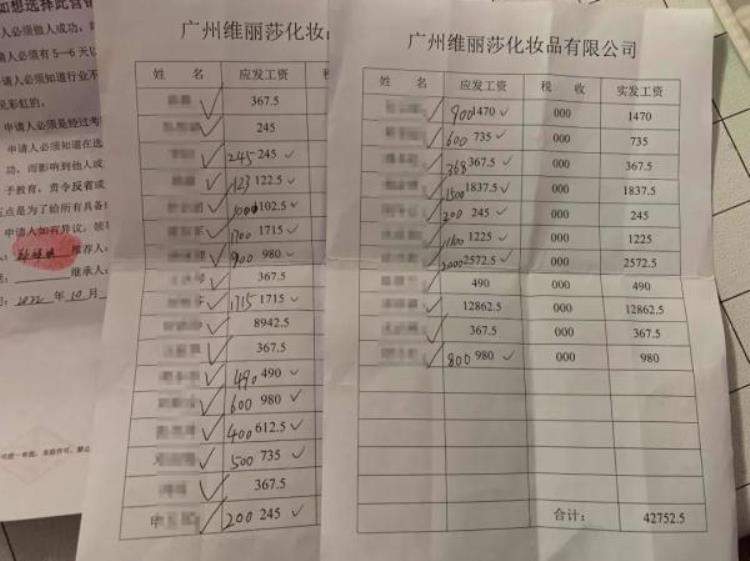 如想选择此营
人必须做人成功,
请人必须有5—6天以
请人必须知道行业不
见彩虹的。
申请人必须是经过考
申请人必须知道在选
功,而影响到他人或
予教育,责令反省或
五点是为了给所有具备
申请人如有异议,
推荐人:
继承人:
2022 年 10 月
广州维丽莎化妆
姓 名 应发工资
367.5
245
245 245
123 122.5
102.5
1700 1715
900 980
367.5
1715 1715
8942.5
367.5
490 490
600 980
400 612.5
500 735
367.5
申 200 245
广州维丽莎化妆品有限公司
姓 名 应发工资 税 收 实发工资
900 1470 000 1470
600 735 000 735
368 367.5 000 367.5
1500 1837.5 000 1837.5
200 245 000 245
1100 1225 000 1225
2000 2572.5 000 2572.5
490 000 490
12862.5 000 12862.5
367.5 000 367.5
800 980 000 980
合计: 42752.5